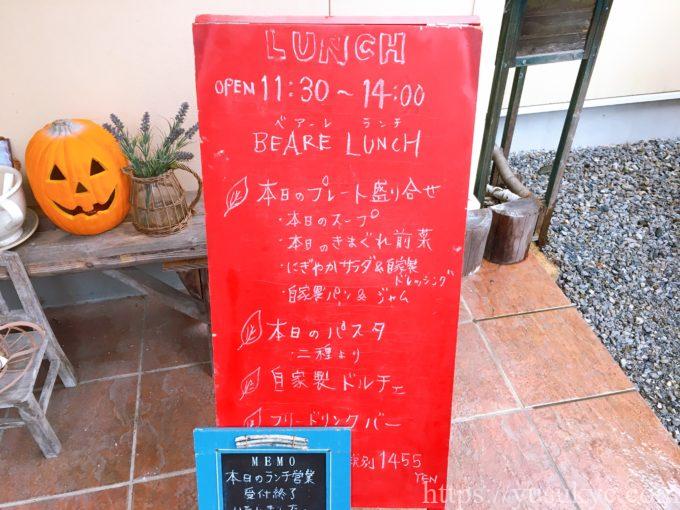 LUNCH
OPEN 11:30～14:00
ベアーレ ランチ
BEARE LUNCH
本日のプレート盛り合せ
・本日のスープ
・本日のきまぐれ前菜
・にぎやかサラダ&自家製
ドレッシング
・自家製パン&ジャム
本日のパスタ
・二種より
自家製ドルチェ
フリードリンクバー
税別 1455
YEN
MEMO
本日のランチ営業
受付終了
いたしました
https://yusukyc.com